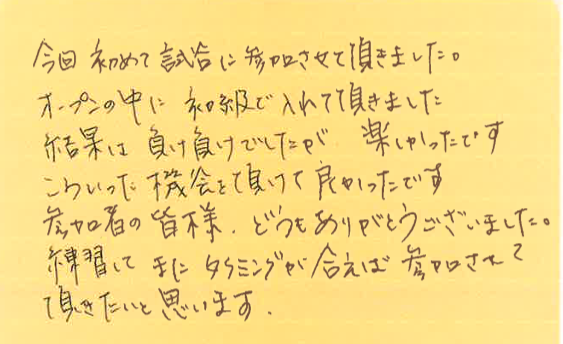 今回 初めて試合に参加させて頂きました。
オープンの中に 初級で入れて頂きました
結果は 負け負けでしたが 楽しかったです
こういった機会を頂けて良かったです
参加者の皆様、どうもありがとうございました。
練習して またタイミングが合えば 参加させて
頂きたいと思います.